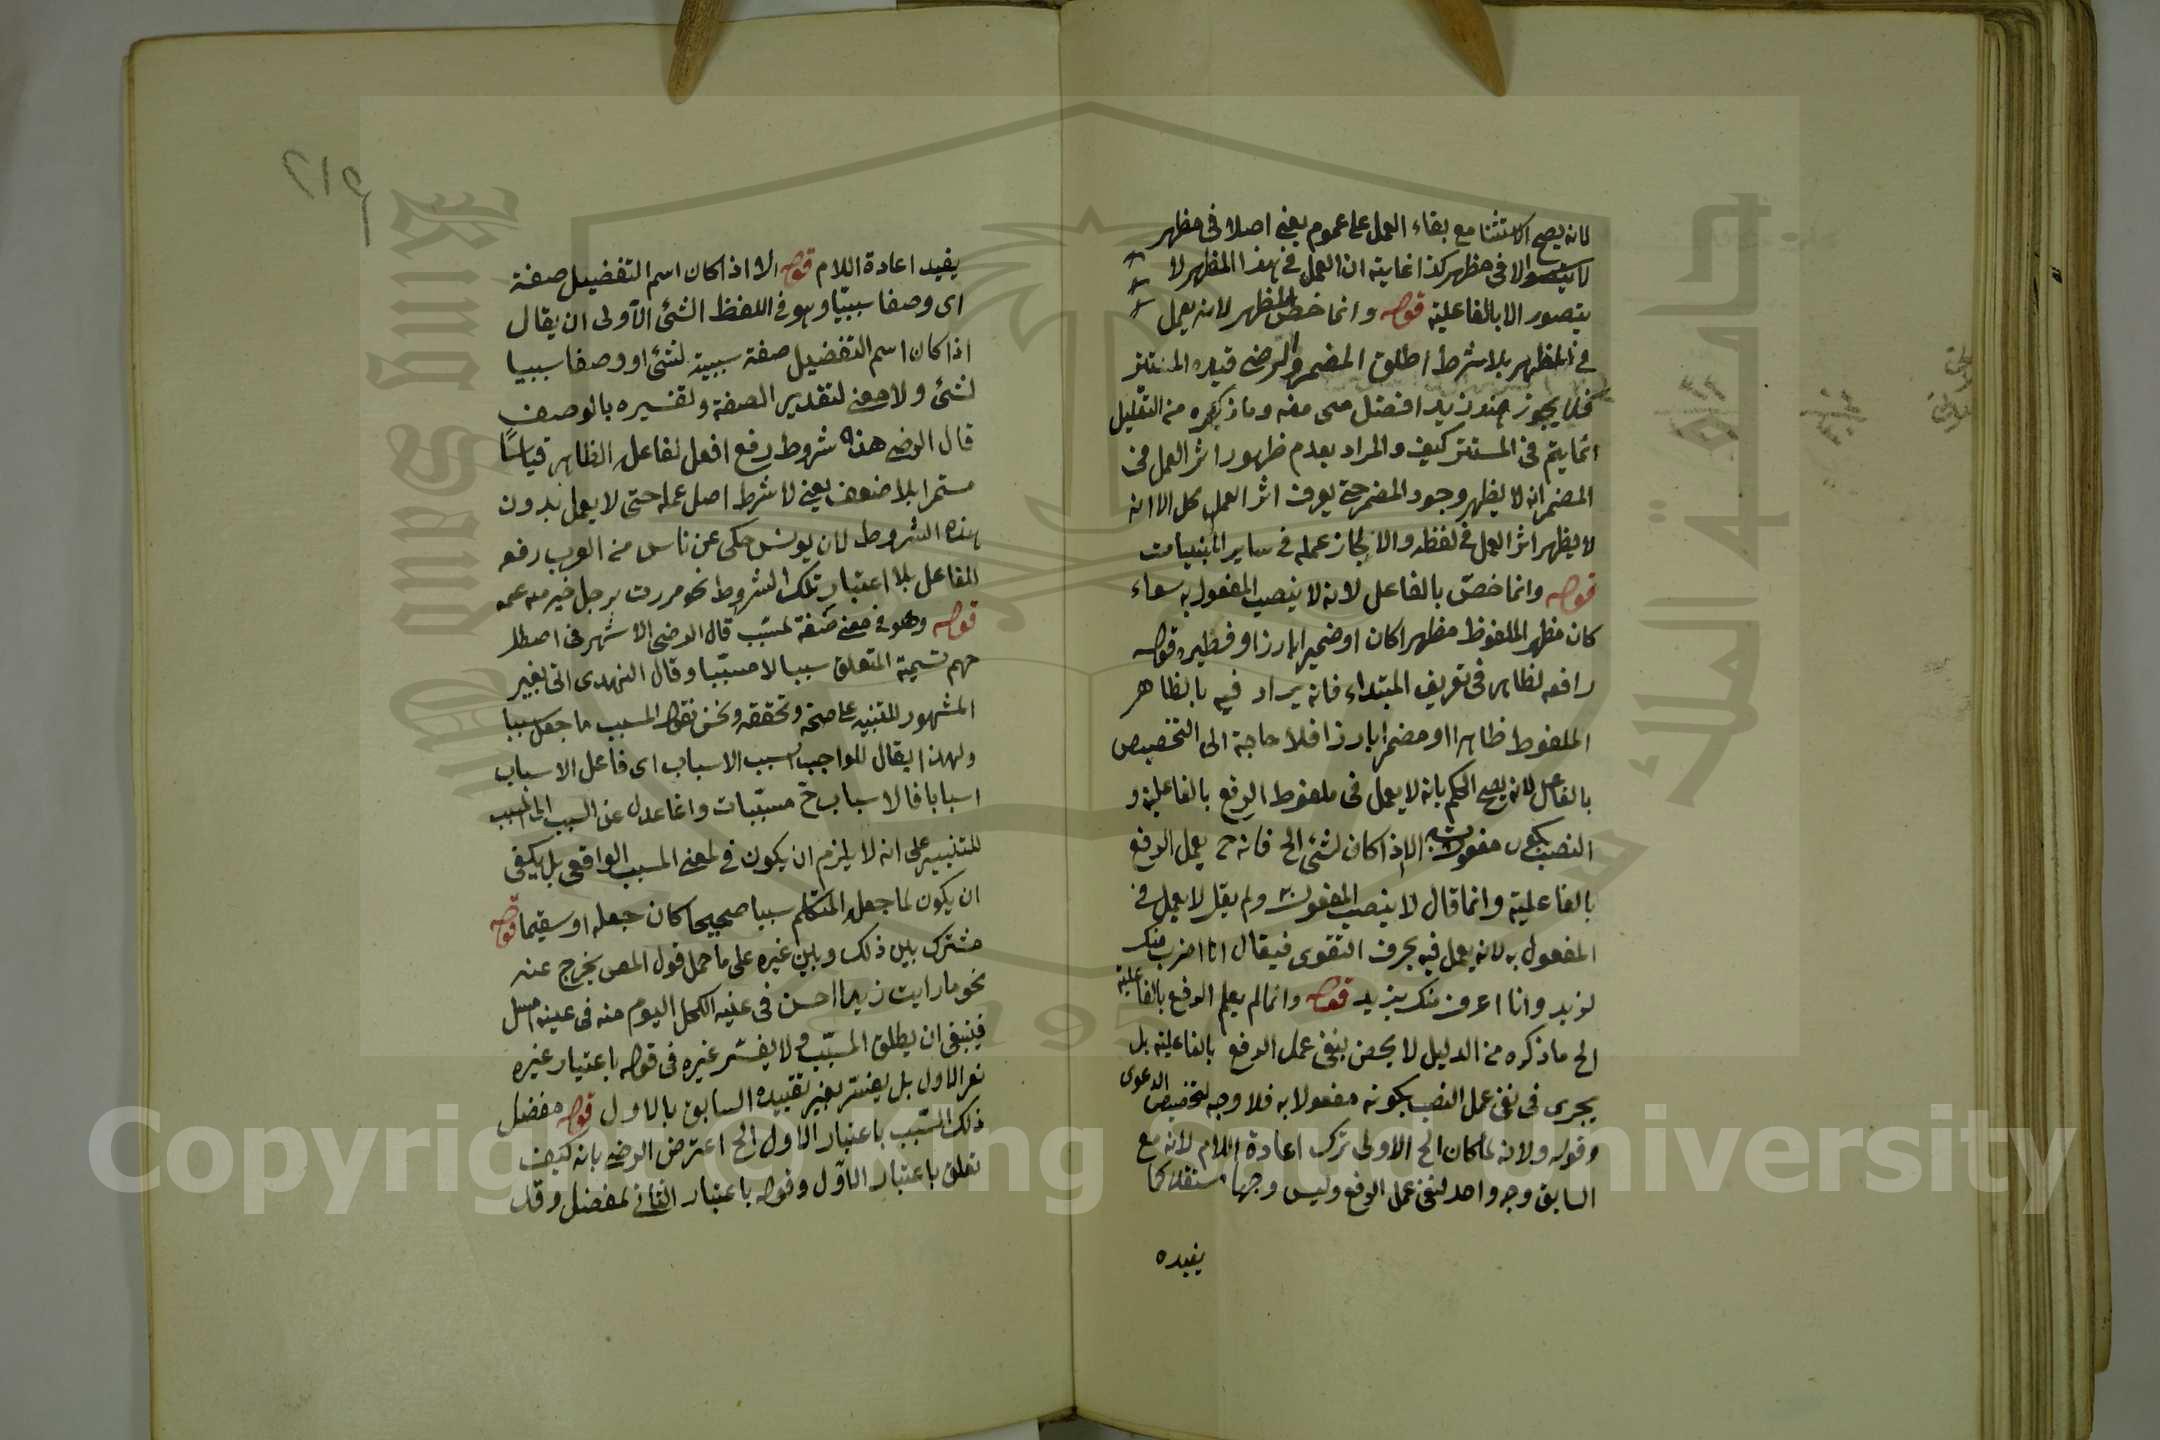 لانه يصح الاستثنا مع بقاء العمل على عموم يعني اصلا في مظهر
لا في مظهر كذا غايته ان العمل في هذا المظهر لا
يتصور الا بالفاعلية قوله وانما خص المظهر لانه يعمل
في المظهر بلا شرط اطلق المضمر والرضي قيده المستتر
فلا يجوز زيد افضل منه وما ذكره من التعليل
انما يتم في المستتر كيف والمراد بعدم ظهور اثر العمل في
المضمر انه لا يظهر وجود المضمر حتى يعرف اثر العمل الا انه
لا يظهر اثر العمل في لفظه والا لجاز عمله في ساير المبنيات
قوله وانما خص بالفاعل لانه لا ينصب المفعول به سواء
كان مظهر الملفوظ مظهرا كان او ضميرا بارزا قوله
رافعه لظاهر في تعريف المبتداء فانه يراد فيه بالظاهر
الملفوظ ظاهرا او مضمرا بارزا فلا حاجة الى التخصيص
بالفاعل لانه يصح الحكم بانه لا يعمل في ملفوظ الرفع بالفاعلية و
النصب الا اذا كان لشئ الخ فانه ح يعمل الرفع
بالفاعلية وانما قال لا ينصب المفعول به ولم يقل لا يعمل في
المفعول به لانه يعمل فيه بحرف التقوى فيقال انا اضرب منك
لزيد وانا اعرف منك بزيد قوله وانما لم يعلم الرفع بالفاعلية
الخ ما ذكره من الدليل لا يخص بنفي عمل الرفع بالفاعلية بل
يجري في نفي عمل النصب بكونه مفعولا به فلا وجه لتخصيص الدعوى
وقوله ولانه لما كان الخ الاولى ترك اعادة اللام لانه مع
السابق وجه واحد لنفي عمل الرفع وليس وجها مستقلا كما
يفيده
٢١٥
يفيد اعادة اللام قوله الا اذا كان اسم التفضيل صفة
اى وصفا سببيا وهو في اللفظ الشئ الاولى ان يقال
اذا كان اسم التفضيل صفة سببية لشئ او وصفا سببيا
لشئ ولا معنى لتقدير الصفة وتفسيره بالوصف
قال الرضي هذه شروط رفع افعل لفاعله الظاهر قياسا
مستمرا بلا ضعف يعني لا شرط اصل عمله حتى لا يعمل بدون
هذه الشروط لان يونس حكى عن ناس من العرب رفعه
للفاعل بلا اعتبار تلك الشروط نحو مررت برجل خير منه عمه
قوله وهو في معنى صفة لمسبب قال الرضي الاشهر في اصطلا
حهم تسمية المتعلق سببا لا مسببا وقال الهندى اتى بغير
المشهور للتنبيه على صحة وتحققه ونحن نقول المسبب ما جعل سببا
ولهذا يقال للواجب مسبب الاسباب اى فاعل الاسباب
اسبابا فالاسباب ح مسببات وانما عدل عن السبب الى المسبب
للتنبيه على انه لا يلزم ان يكون في المعنى المسبب الواقعي بل يكفي
ان يكون لما جعله المتكلم سببا صحيحا كان جعله او سقيما قوله
مشترك بين ذلك وبين غيره على ما حمل قول المص يخرج عنه
نحو ما رايت زيدا احسن في عنيه الكحل اليوم منه في عينه امس
فينبغي ان يطلق المسبب ولا يفسر غيره في قوله باعتبار غيره
بغير الاول بل يفسر بغير تقييده السابق بالاول قوله مفضل
ذلك المسبب باعتبار الاول الخ اعترض الرضي بانه كيف
تعلق باعتبار الاول وقوله باعتبار الثاني لمفضل وقد
Copyright © King Saud University
King Saud University
جامعة الملك سعود
1957